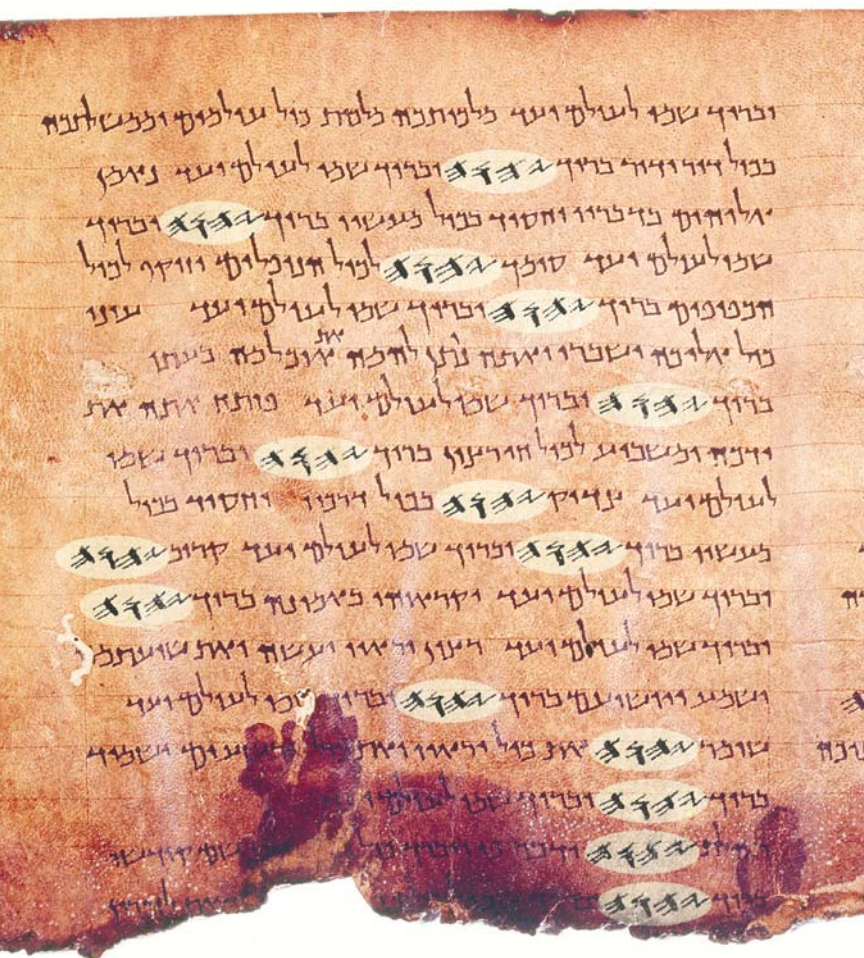 וברוך שמו לעולם ועד מלכותכה מלכות כול עולמים וממשלתכה
בכול דור ודור ברוך 𐤉𐤄𐤅𐤄 וברוך שמו לעולם ועד נאמן
אלוהים בדבריו וחסיד בכול מעשיו ברוך 𐤉𐤄𐤅𐤄 וברוך
שמו לעולם ועד סומך 𐤉𐤄𐤅𐤄 לכול הנופלים וזוקף לכול
הכפופים ברוך 𐤉𐤄𐤅𐤄 וברוך שמו לעולם ועד עיני
כול אליכה ישברו ואתה נותן להמה את אוכלמה בעתו
ברוך 𐤉𐤄𐤅𐤄 וברוך שמו לעולם ועד פותח אתה את
ידכה ומשביע לכול חי רצון ברוך 𐤉𐤄𐤅𐤄 וברוך שמו
לעולם ועד צדיק 𐤉𐤄𐤅𐤄 בכול דרכיו וחסיד בכול
מעשיו ברוך 𐤉𐤄𐤅𐤄 וברוך שמו לעולם ועד קרוב 𐤉𐤄𐤅𐤄
וברוך שמו לעולם ועד יקראוהו באמונה ברוך 𐤉𐤄𐤅𐤄
וברוך שמו לעולם ועד רצון יראיו יעשה ואת שועתמה
ישמע ויושיעם ברוך 𐤉𐤄𐤅𐤄 וברוך שמו לעולם ועד
שומר 𐤉𐤄𐤅𐤄 את כול יראיו ואת כול רשעים ישמיד
ברוך 𐤉𐤄𐤅𐤄 וברוך שמו לעולם ועד
תהלת 𐤉𐤄𐤅𐤄 ידבר פי ויברך כול שם קודשו
ברוך 𐤉𐤄𐤅𐤄 זואת לזכרון